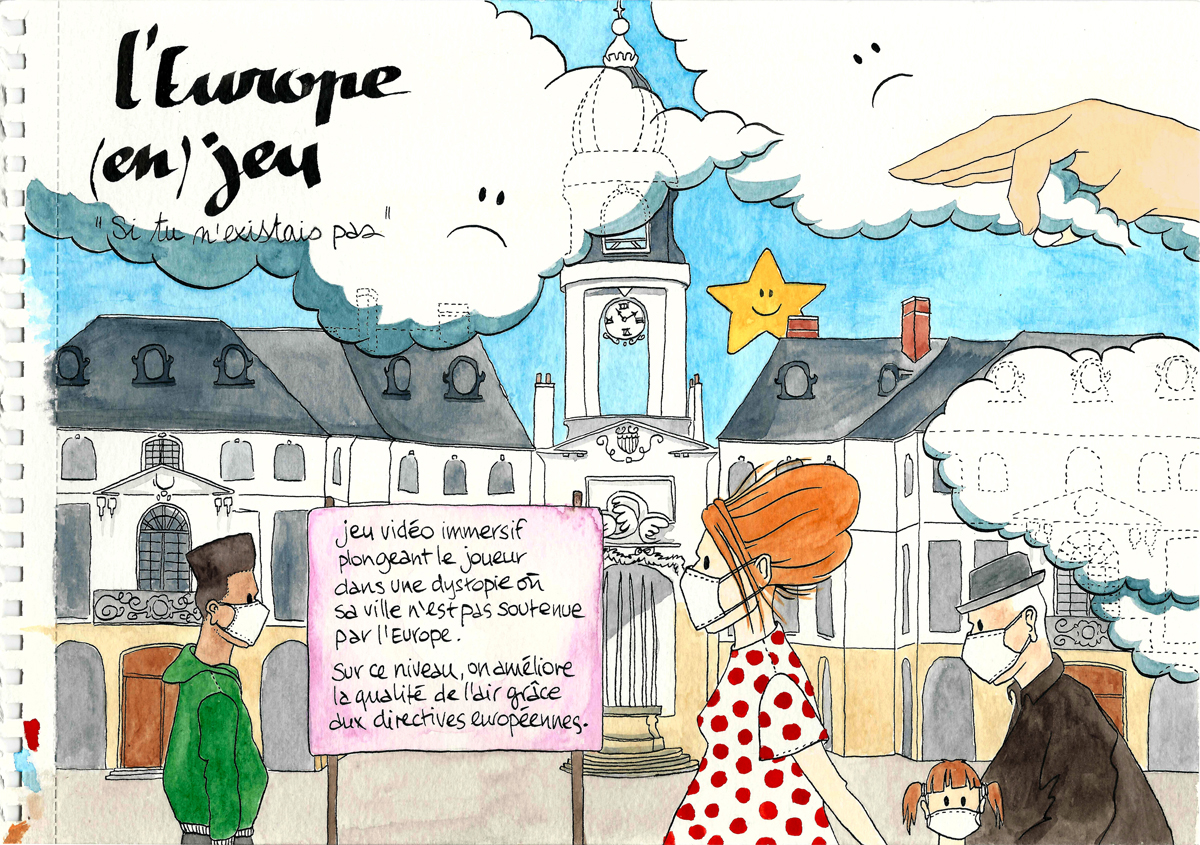 l'Europe
(en) jeu
"Si tu n'existais pas"
jeu vidéo immersif
plongeant le joueur
dans une dystopie où
sa ville n'est pas soutenue
par l'Europe.
Sur ce niveau, on améliore
la qualité de l'air grâce
aux directives européennes.